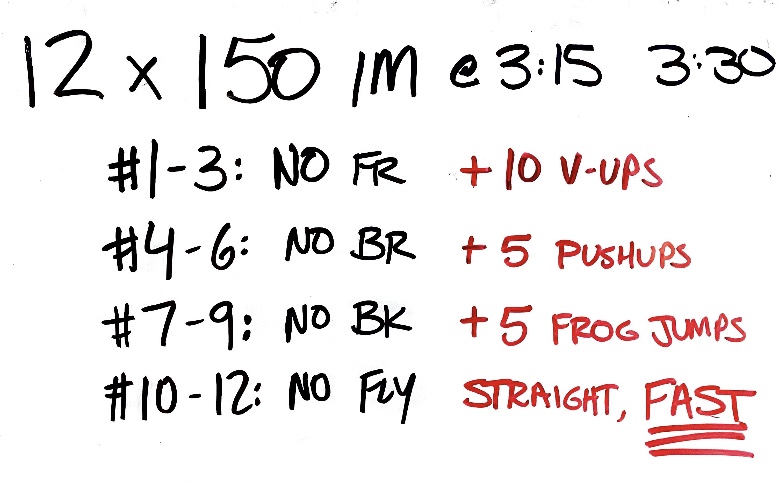 12 x 150 IM @ 3:15 3:30
#1-3: NO FR +10 V-UPS
#4-6: NO BR +5 PUSHUPS
#7-9: NO BK +5 FROG JUMPS
#10-12: NO FLY STRAIGHT, FAST